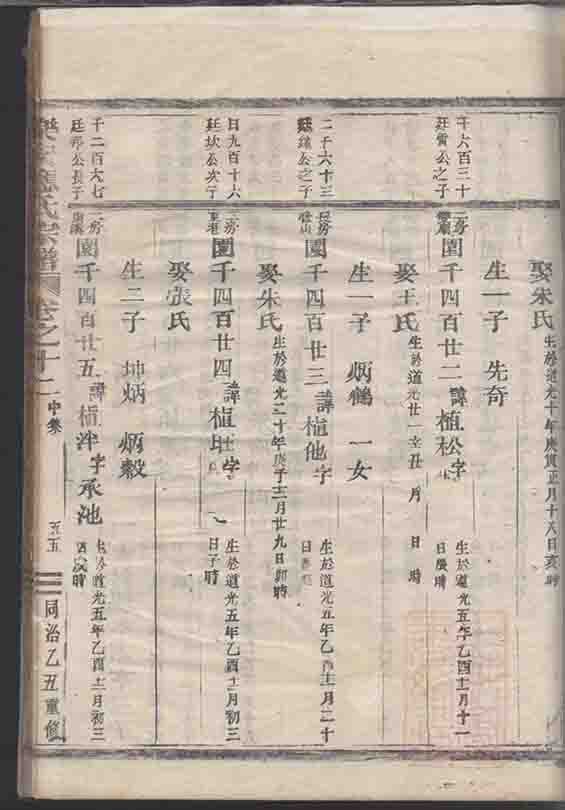 娶朱氏 生於道光十年庚寅正月十八日亥時
生一子 先奇
千六百三十
廷賓公之子
二房
園千四百廿二 諱植松 字
生於道光五年乙酉十二月十一
日 時
娶王氏 生於道光廿一辛丑 月 日 時
生一子 炳鶴 一女
二千六十三
公之子
長房
園千四百廿三 諱植他 字
生於道光五年乙酉十二月二十
日 時
娶朱氏 生於道光二十年庚子十二月廿九日卯時
日九百十六
廷坎公次子
三房
園千四百廿四 諱植 字
生於道光五年乙酉十二月初三
日子時
娶張氏
生二子 坤炳 炳毅
千二百六七
廷 公長子
二房
園千四百廿五 諱植泮 字承池
生於道光五年乙酉十二月初三
日 時
氏宗譜 卷之十二 中集 五五 同治乙丑重修